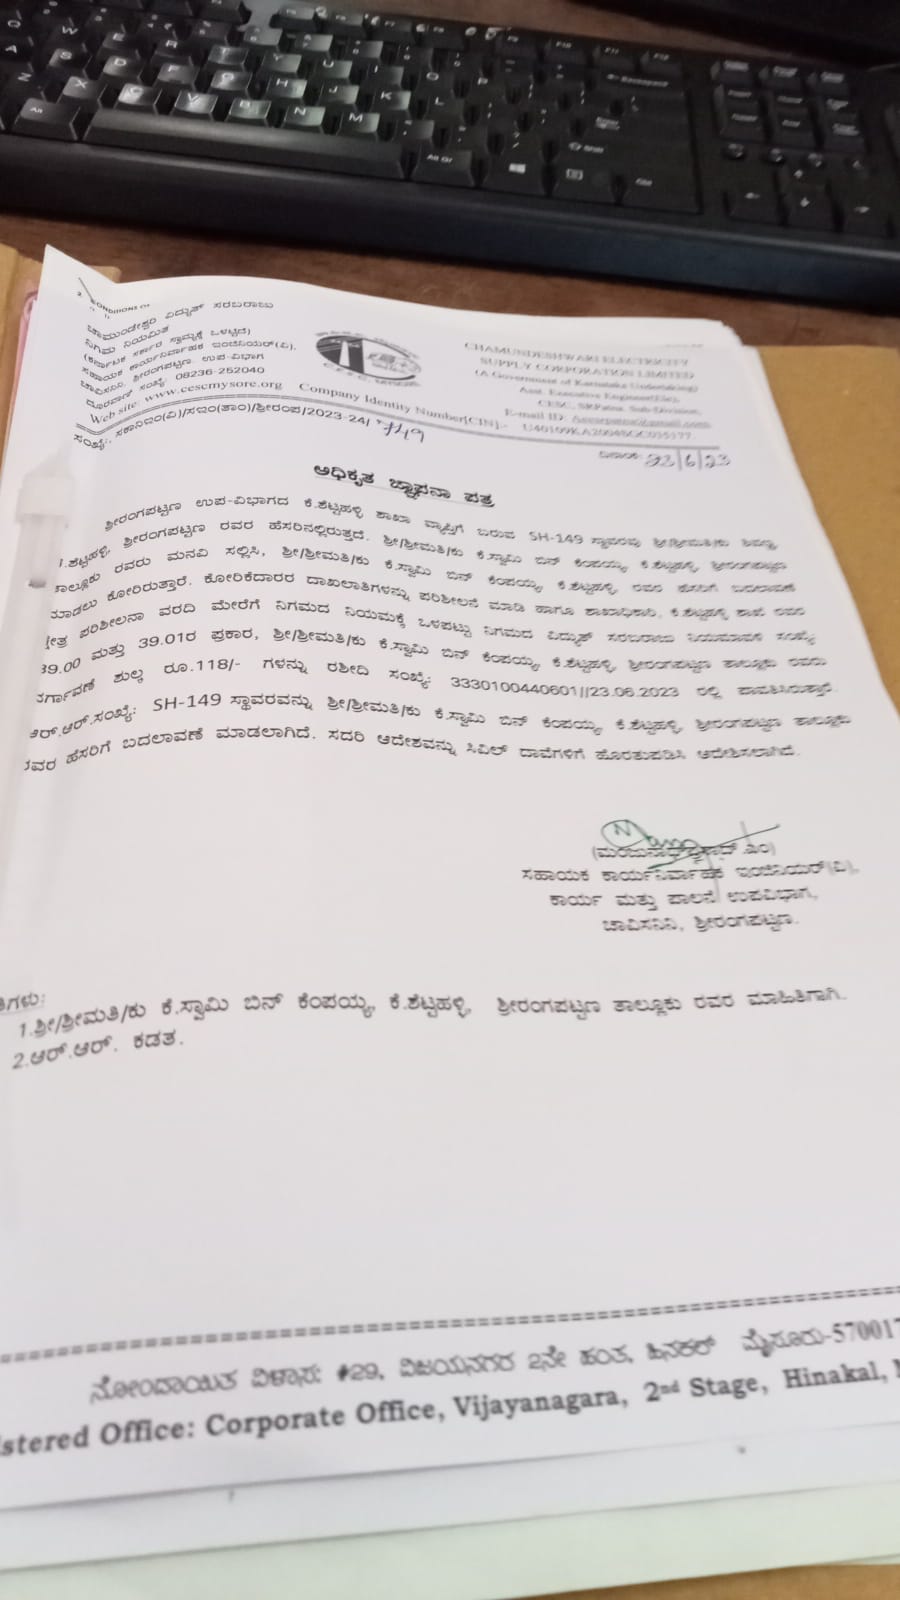 ಚಾಮುಂಡೇಶ್ವರಿ ವಿದ್ಯುತ್ ಸರಬರಾಜು
ನಿಗಮ ನಿಯಮಿತ
(ಕರ್ನಾಟಕ ಸರ್ಕಾರ ಸ್ವಾಮ್ಯಕ್ಕೆ ಒಳಪಟ್ಟಿದೆ)
ಸಹಾಯಕ ಕಾರ್ಯನಿರ್ವಾಹಕ ಇಂಜಿನಿಯರ್(ವಿ),
ಚಾವಿಸನಿನಿ, ಶ್ರೀರಂಗಪಟ್ಟಣ ಉಪ-ವಿಭಾಗ
ದೂರವಾಣಿ ಸಂಖ್ಯೆ 08236-252040
CHAMUNDESHWARI ELECTRICITY
SUPPLY CORPORATION LIMITED
(A Government of Karnataka Undertaking)
Asst. Executive Engineer(Ele),
CESC, SRPatna Sub-Division,
E-mail ID:
Web site www.cescmysore.org Company Identity Number[CIN]:-
ಸಂಖ್ಯೆ: ಸಕಾನಿಇಂ(ವಿ)/ಸಇಂ(ತಾಂ)/ಶ್ರೀರಂಪ/2023-24/
ದಿನಾಂಕ: 23/6/23
ಅಧಿಕೃತ ಜ್ಞಾಪನಾ ಪತ್ರ
ಶ್ರೀರಂಗಪಟ್ಟಣ ಉಪ-ವಿಭಾಗದ ಕೆ.ಶೆಟ್ಟಹಳ್ಳಿ ಶಾಖಾ ವ್ಯಾಪ್ತಿಗೆ ಬರುವ SH-149 ಸ್ಥಾವರವು ಶ್ರೀ/ಶ್ರೀಮತಿ/ಕು
.ಶೆಟ್ಟಹಳ್ಳಿ, ಶ್ರೀರಂಗಪಟ್ಟಣ ರವರ ಹೆಸರಿನಲ್ಲಿರುತ್ತದೆ. ಶ್ರೀ/ಶ್ರೀಮತಿ/ಕು ಕೆ.ಸ್ವಾಮಿ ಬಿನ್ ಕೆಂಪಯ್ಯ, ಕೆ.ಶೆಟ್ಟಹಳ್ಳಿ, ಶ್ರೀರಂಗಪಟ್ಟಣ
ತಾಲ್ಲೂಕು ರವರು ಮನವಿ ಸಲ್ಲಿಸಿ, ಶ್ರೀ/ಶ್ರೀಮತಿ/ಕು ಕೆ.ಸ್ವಾಮಿ ಬಿನ್ ಕೆಂಪಯ್ಯ, ಕೆ.ಶೆಟ್ಟಹಳ್ಳಿ, ರವರ ಹೆಸರಿಗೆ ಬದಲಾವಣೆ
ಮಾಡಲು ಕೋರಿರುತ್ತಾರೆ. ಕೋರಿಕೆದಾರರ ದಾಖಲಾತಿಗಳನ್ನು ಪರಿಶೀಲನೆ ಮಾಡಿ ಹಾಗೂ ಶಾಖಾಧಿಕಾರಿ, ಕೆ.ಶೆಟ್ಟಹಳ್ಳಿ ಶಾಖೆ ರವರ
ಕ್ಷೇತ್ರ ಪರಿಶೀಲನಾ ವರದಿ ಮೇರೆಗೆ ನಿಗಮದ ನಿಯಮಕ್ಕೆ ಒಳಪಟ್ಟು ನಿಗಮದ ವಿದ್ಯುತ್ ಸರಬರಾಜು ನಿಯಮಾವಳಿ ಸಂಖ್ಯೆ
39.00 ಮತ್ತು 39.01ರ ಪ್ರಕಾರ, ಶ್ರೀ/ಶ್ರೀಮತಿ/ಕು ಕೆ.ಸ್ವಾಮಿ ಬಿನ್ ಕೆಂಪಯ್ಯ, ಕೆ.ಶೆಟ್ಟಹಳ್ಳಿ, ಶ್ರೀರಂಗಪಟ್ಟಣ ತಾಲ್ಲೂಕು ರವರು
ವರ್ಗಾವಣೆ ಶುಲ್ಕ ರೂ.118/- ಗಳನ್ನು ರಶೀದಿ ಸಂಖ್ಯೆ: 3330100440601//23.06.2023 ರಲ್ಲಿ ಪಾವತಿಸಿರುತ್ತಾರೆ.
ಆರ್.ಆರ್.ಸಂಖ್ಯೆ: SH-149 ಸ್ಥಾವರವನ್ನು ಶ್ರೀ/ಶ್ರೀಮತಿ/ಕು ಕೆ.ಸ್ವಾಮಿ ಬಿನ್ ಕೆಂಪಯ್ಯ, ಕೆ.ಶೆಟ್ಟಹಳ್ಳಿ, ಶ್ರೀರಂಗಪಟ್ಟಣ ತಾಲ್ಲೂಕು
ರವರ ಹೆಸರಿಗೆ ಬದಲಾವಣೆ ಮಾಡಲಾಗಿದೆ. ಸದರಿ ಆದೇಶವನ್ನು ಸಿವಿಲ್ ದಾವೆಗಳಿಗೆ ಹೊರತುಪಡಿಸಿ ಆದೇಶಿಸಲಾಗಿದೆ.
ಸಹಾಯಕ ಕಾರ್ಯನಿರ್ವಾಹಕ ಇಂಜಿನಿಯರ್(ವಿ),
ಕಾರ್ಯ ಮತ್ತು ಪಾಲನೆ ಉಪವಿಭಾಗ,
ಚಾವಿಸನಿನಿ, ಶ್ರೀರಂಗಪಟ್ಟಣ.
ತಿಗಳು:
1.ಶ್ರೀ/ಶ್ರೀಮತಿ/ಕು ಕೆ.ಸ್ವಾಮಿ ಬಿನ್ ಕೆಂಪಯ್ಯ, ಕೆ.ಶೆಟ್ಟಹಳ್ಳಿ, ಶ್ರೀರಂಗಪಟ್ಟಣ ತಾಲ್ಲೂಕು ರವರ ಮಾಹಿತಿಗಾಗಿ.
2.ಆರ್.ಆರ್. ಕಡತ.
ನೋಂದಾಯಿತ ವಿಳಾಸ: #29, ವಿಜಯನಗರ 2ನೇ ಹಂತ, ಹಿನಕಲ್ ಮೈಸೂರು-570017
stered Office: Corporate Office, Vijayanagara, 2nd Stage, Hinakal,